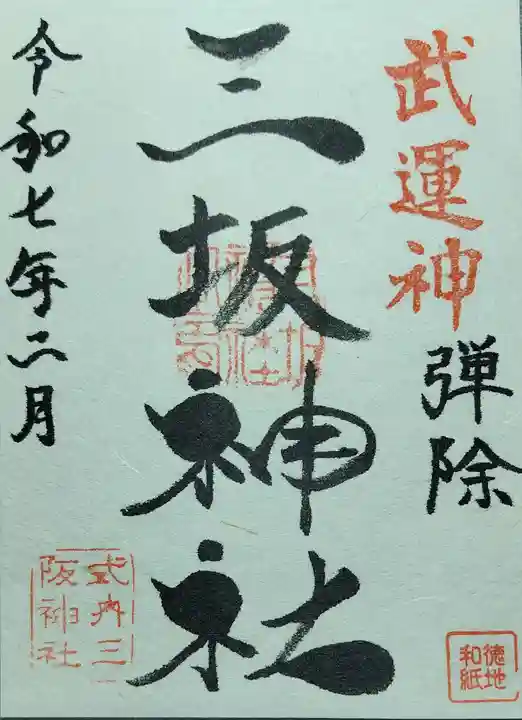 武運神
弾除
三坂神社
令和七年二月
式内三
坂神社
徳地
和紙